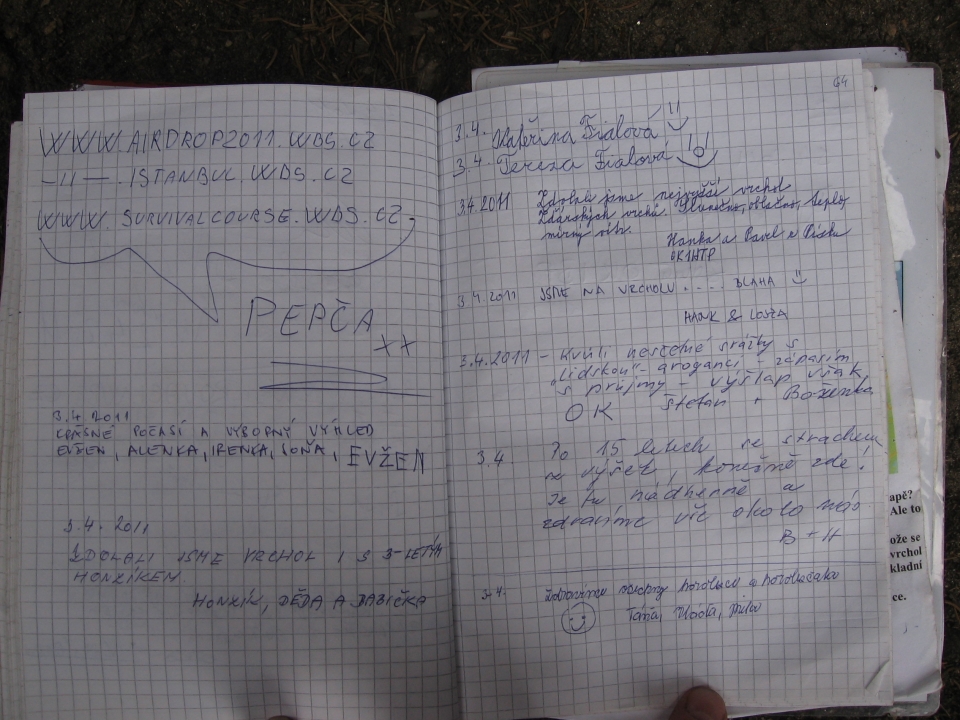 WWW.AIRDROP2011.WBS.CZ
-11-.ISTANBUL.WBS.CZ
WWW.SURVIVALCOURSE.WBS.CZ
PEPČA
XX
3.4.2011
KRÁSNÉ POČASÍ A VÝBORNÝ VÝHLED
EVŽEN, ALENKA, IRENKA, SOŇA, EVŽEN
3.4.2011
ZDOLALI JSME VRCHOL I S 3-LETÝM
HONZÍKEM.
HONZÍK, DĚDA A BABIČKA
64
3.4. Kateřina Fialová
3.4. Tereza Fialová
3.4.2011 Zdolali jsme nejvyšší vrchol
Žďárských vrchů. Slunečno, oblačno, teplo,
mírný vítr.
Hanka a Pavel z Písku
OK1HTP
3.4.2011 JSME NA VRCHOLU.... BLAHA
HANK &
3.4.2011 - Kvůli nesčetné srážky s
„Lidskou" - arogancí - zápasím
s průjmy - výšlap však
OK Štefan + Boženka
3.4. Po 15 letech se strachem
z výšek, konečně zde!
Je tu nádherně a
zdravíme vše okolo nás.
B + H
3.4. Zdravíme všechny horolezce a
Táňa, Vlasta,
apě?
Ale to
ože se
vrchol
kladní
ce.